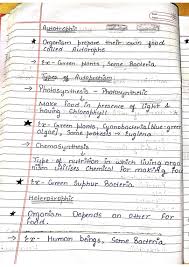 Autotrophic
★ Organism prepare their own food
called Autotrophs
→ Ex - Green plants, Some Bacteria.
Types of Autotrophism
→ Photosynthesis - Photosynthetic
Make Food in presence of light &
having Chlorophyll
★ Ex - Green Plants, Cyanobacteria (blue green
algae), Some protests → Euglena
→ Chemosynthesis
Type of nutrition in which living organi
sm Utilises Chemical for making food
★ Ex - Green Sulphur Bacteria
Heterotrophic
★ Organism Depends on other for
food.
→ Ex - Human beings, Some Bacteria.